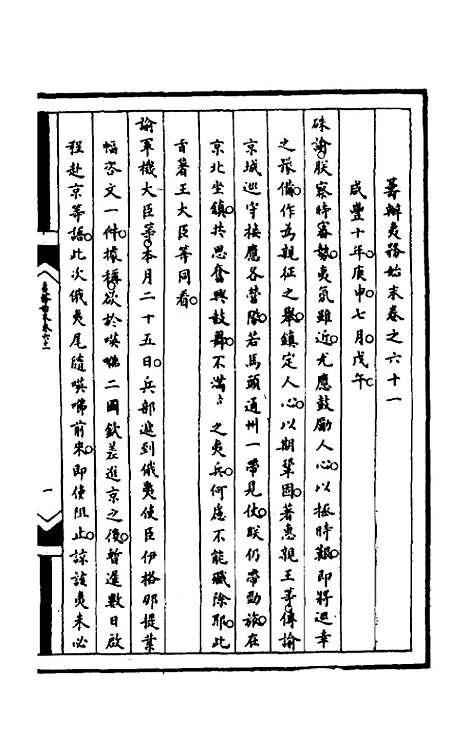 籌辦夷務始末卷之六十一
咸豐十年庚申七月戊午
硃諭朕察時審勢夷氛雖近尤應鼓勵人心以拯時艱即將巡幸
之豫備作為親征之舉鎮定人心以期鞏固著惠親王等傳諭
京城巡守接應各營隊若馬頭通州一帶見仗朕仍帶勁旅在
京北坐鎮共思奮興鼓舞不滿萬之夷兵何慮不能殲除耶此
旨著王大臣等同看
諭軍機大臣等本月二十五日兵部遞到俄夷使臣伊格那提業
幅咨文一件據稱欲於𠸄咈二國欽差進京之後暫遲數日啟
程赴京等語此次俄夷尾隨𠸄咈前來即使阻止諒該夷未必
一